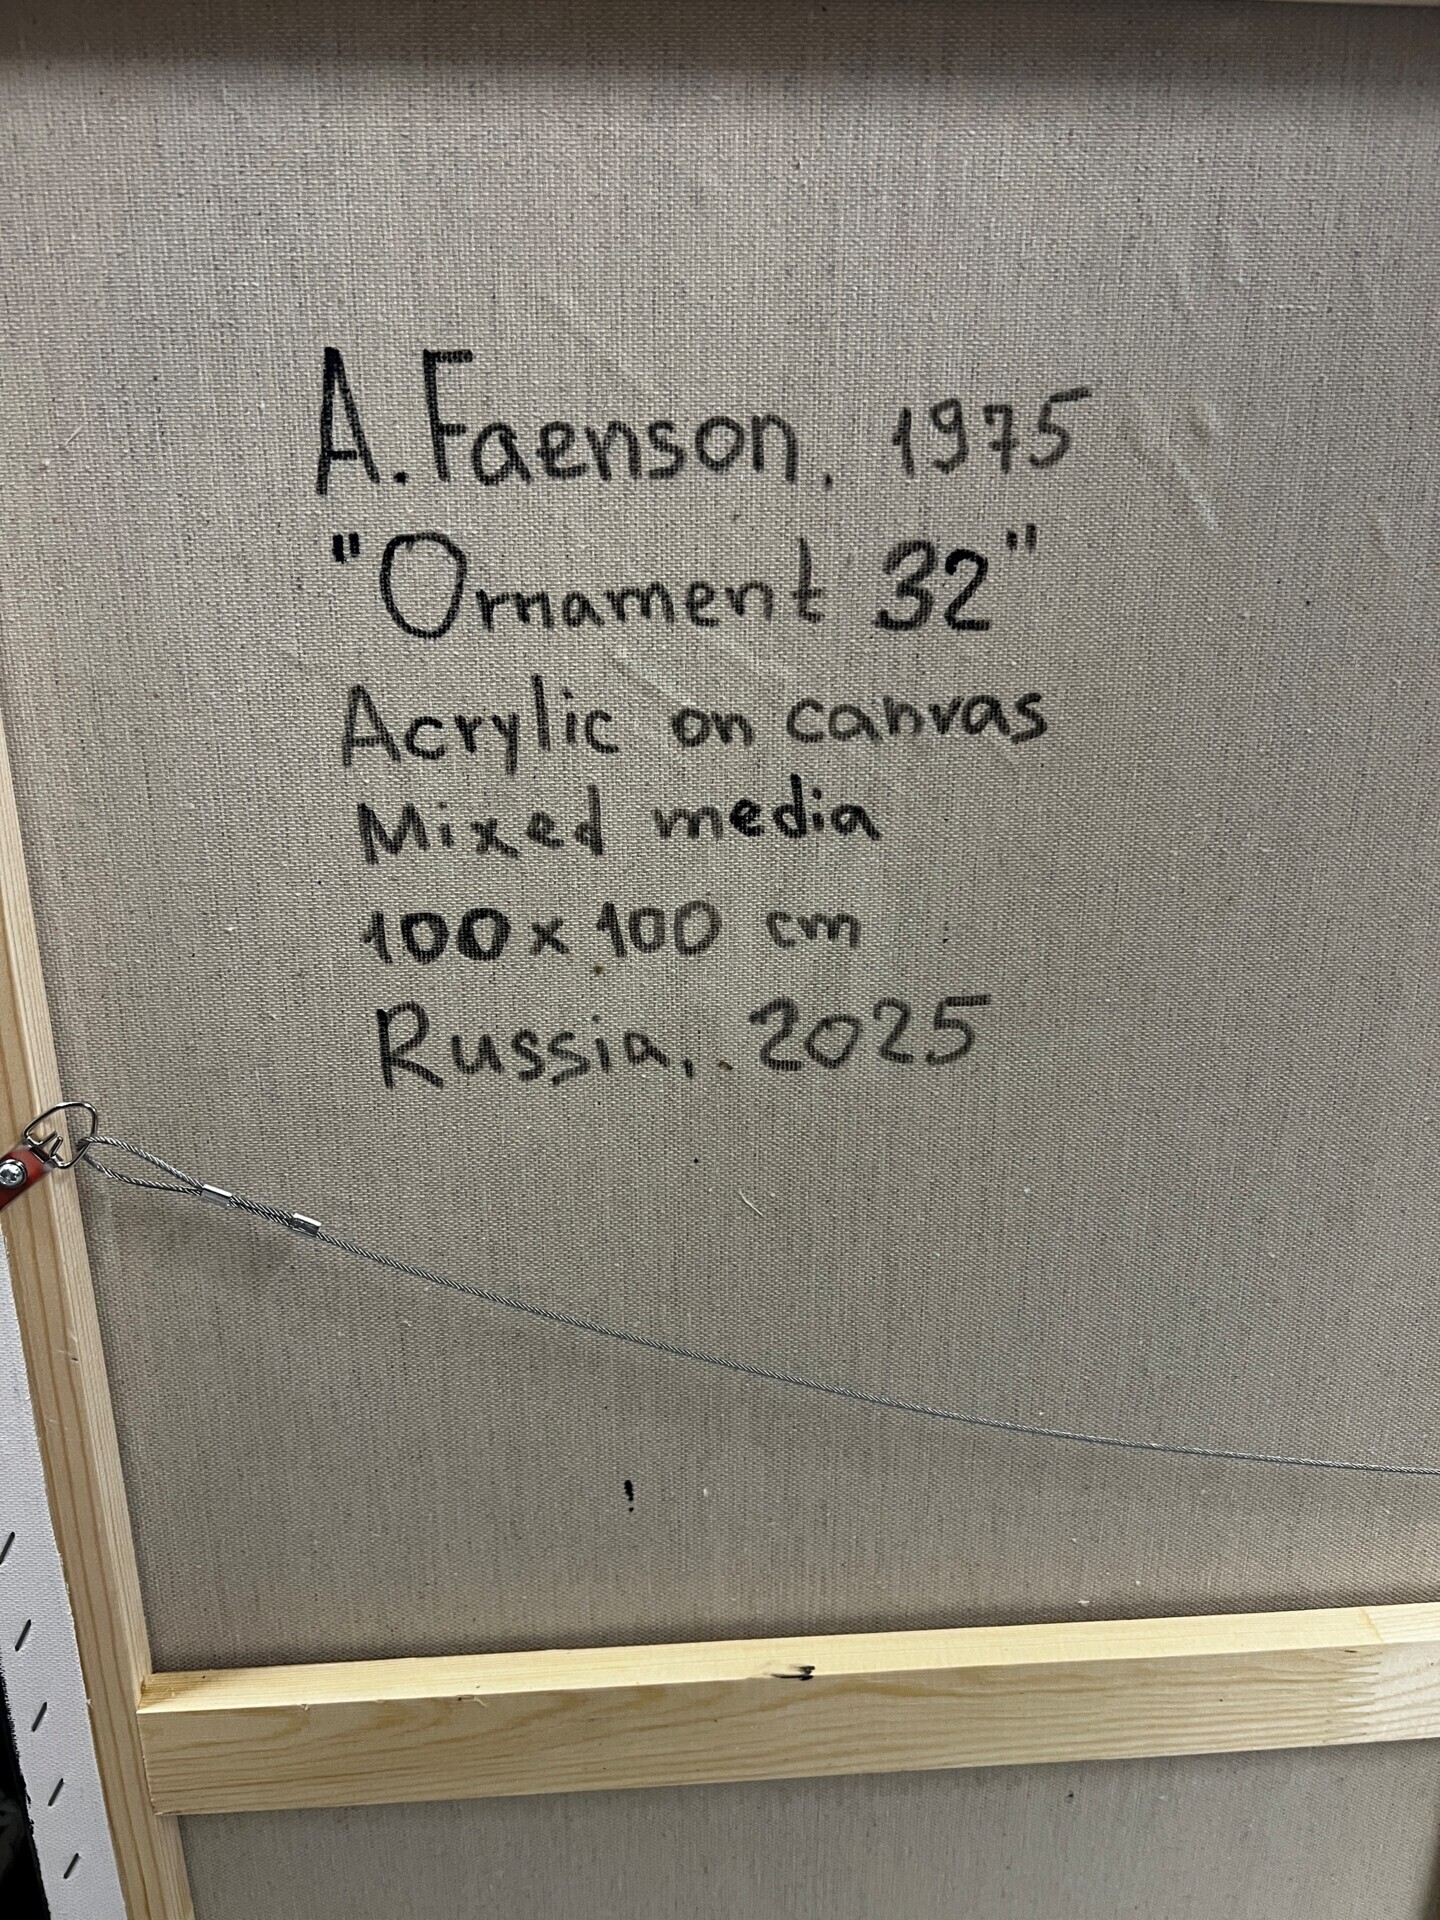 A. Faenson, 1975
"Ornament 32"
Acrylic on canvas
Mixed media
100x100 cm
Russia, 2025